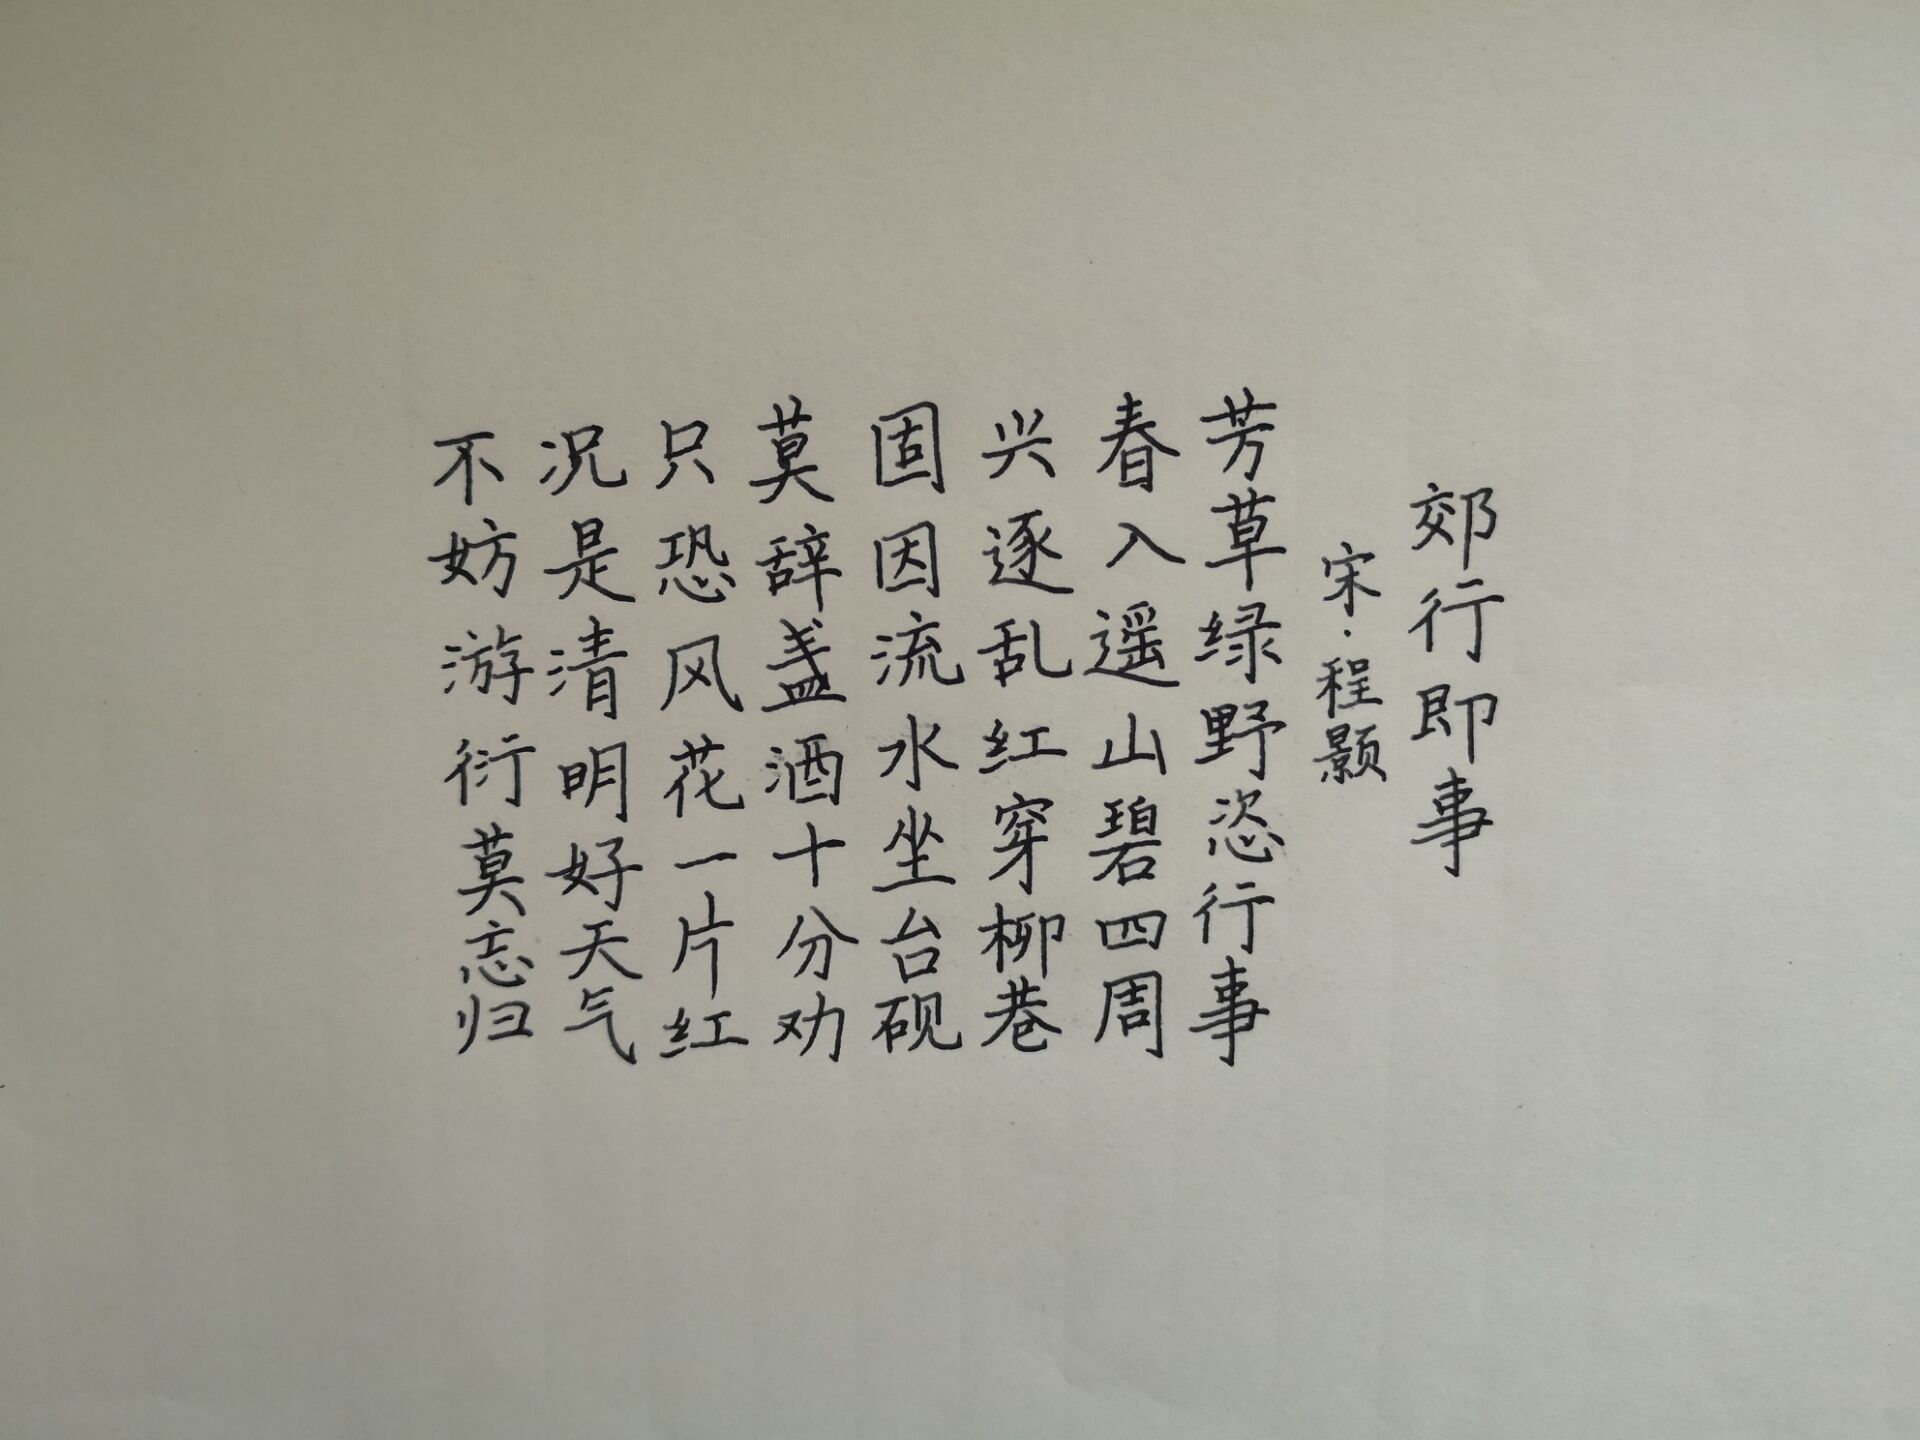 郊行即事
宋·程颢
芳草绿野恣行事
春入遥山碧四周
兴逐乱红穿柳巷
固因流水坐台砚
莫辞盏酒十分劝
只恐风花一片红
况是清明好天气
不妨游衍莫忘归